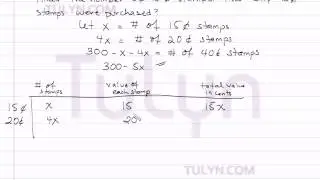 stamps were purchased?
Let x = # of 15¢ stamps
4x = # of 20¢ stamps
300 - x - 4x = # of 40¢ stamps
300 - 5x
# of stamps value of each stamp total value in cents
15¢ x 15 15x
20¢ 4x 20
TULYN
TULYN.COM